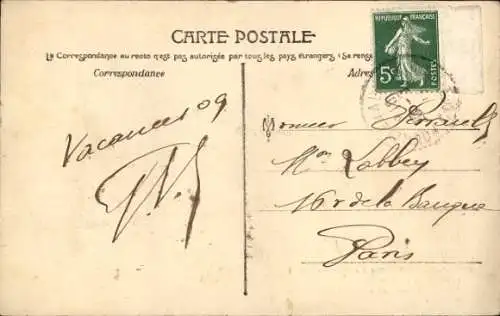 CARTE POSTALE
La Correspondance au recto n'est pas autorisée par tous les pays étrangers (Se rense
Correspondance
Adres
REPUBLIQUE FRANÇAISE
5c
POSTES
Vacances 09
Monsieur
Mon Labbey
16 r de la Banque
Paris